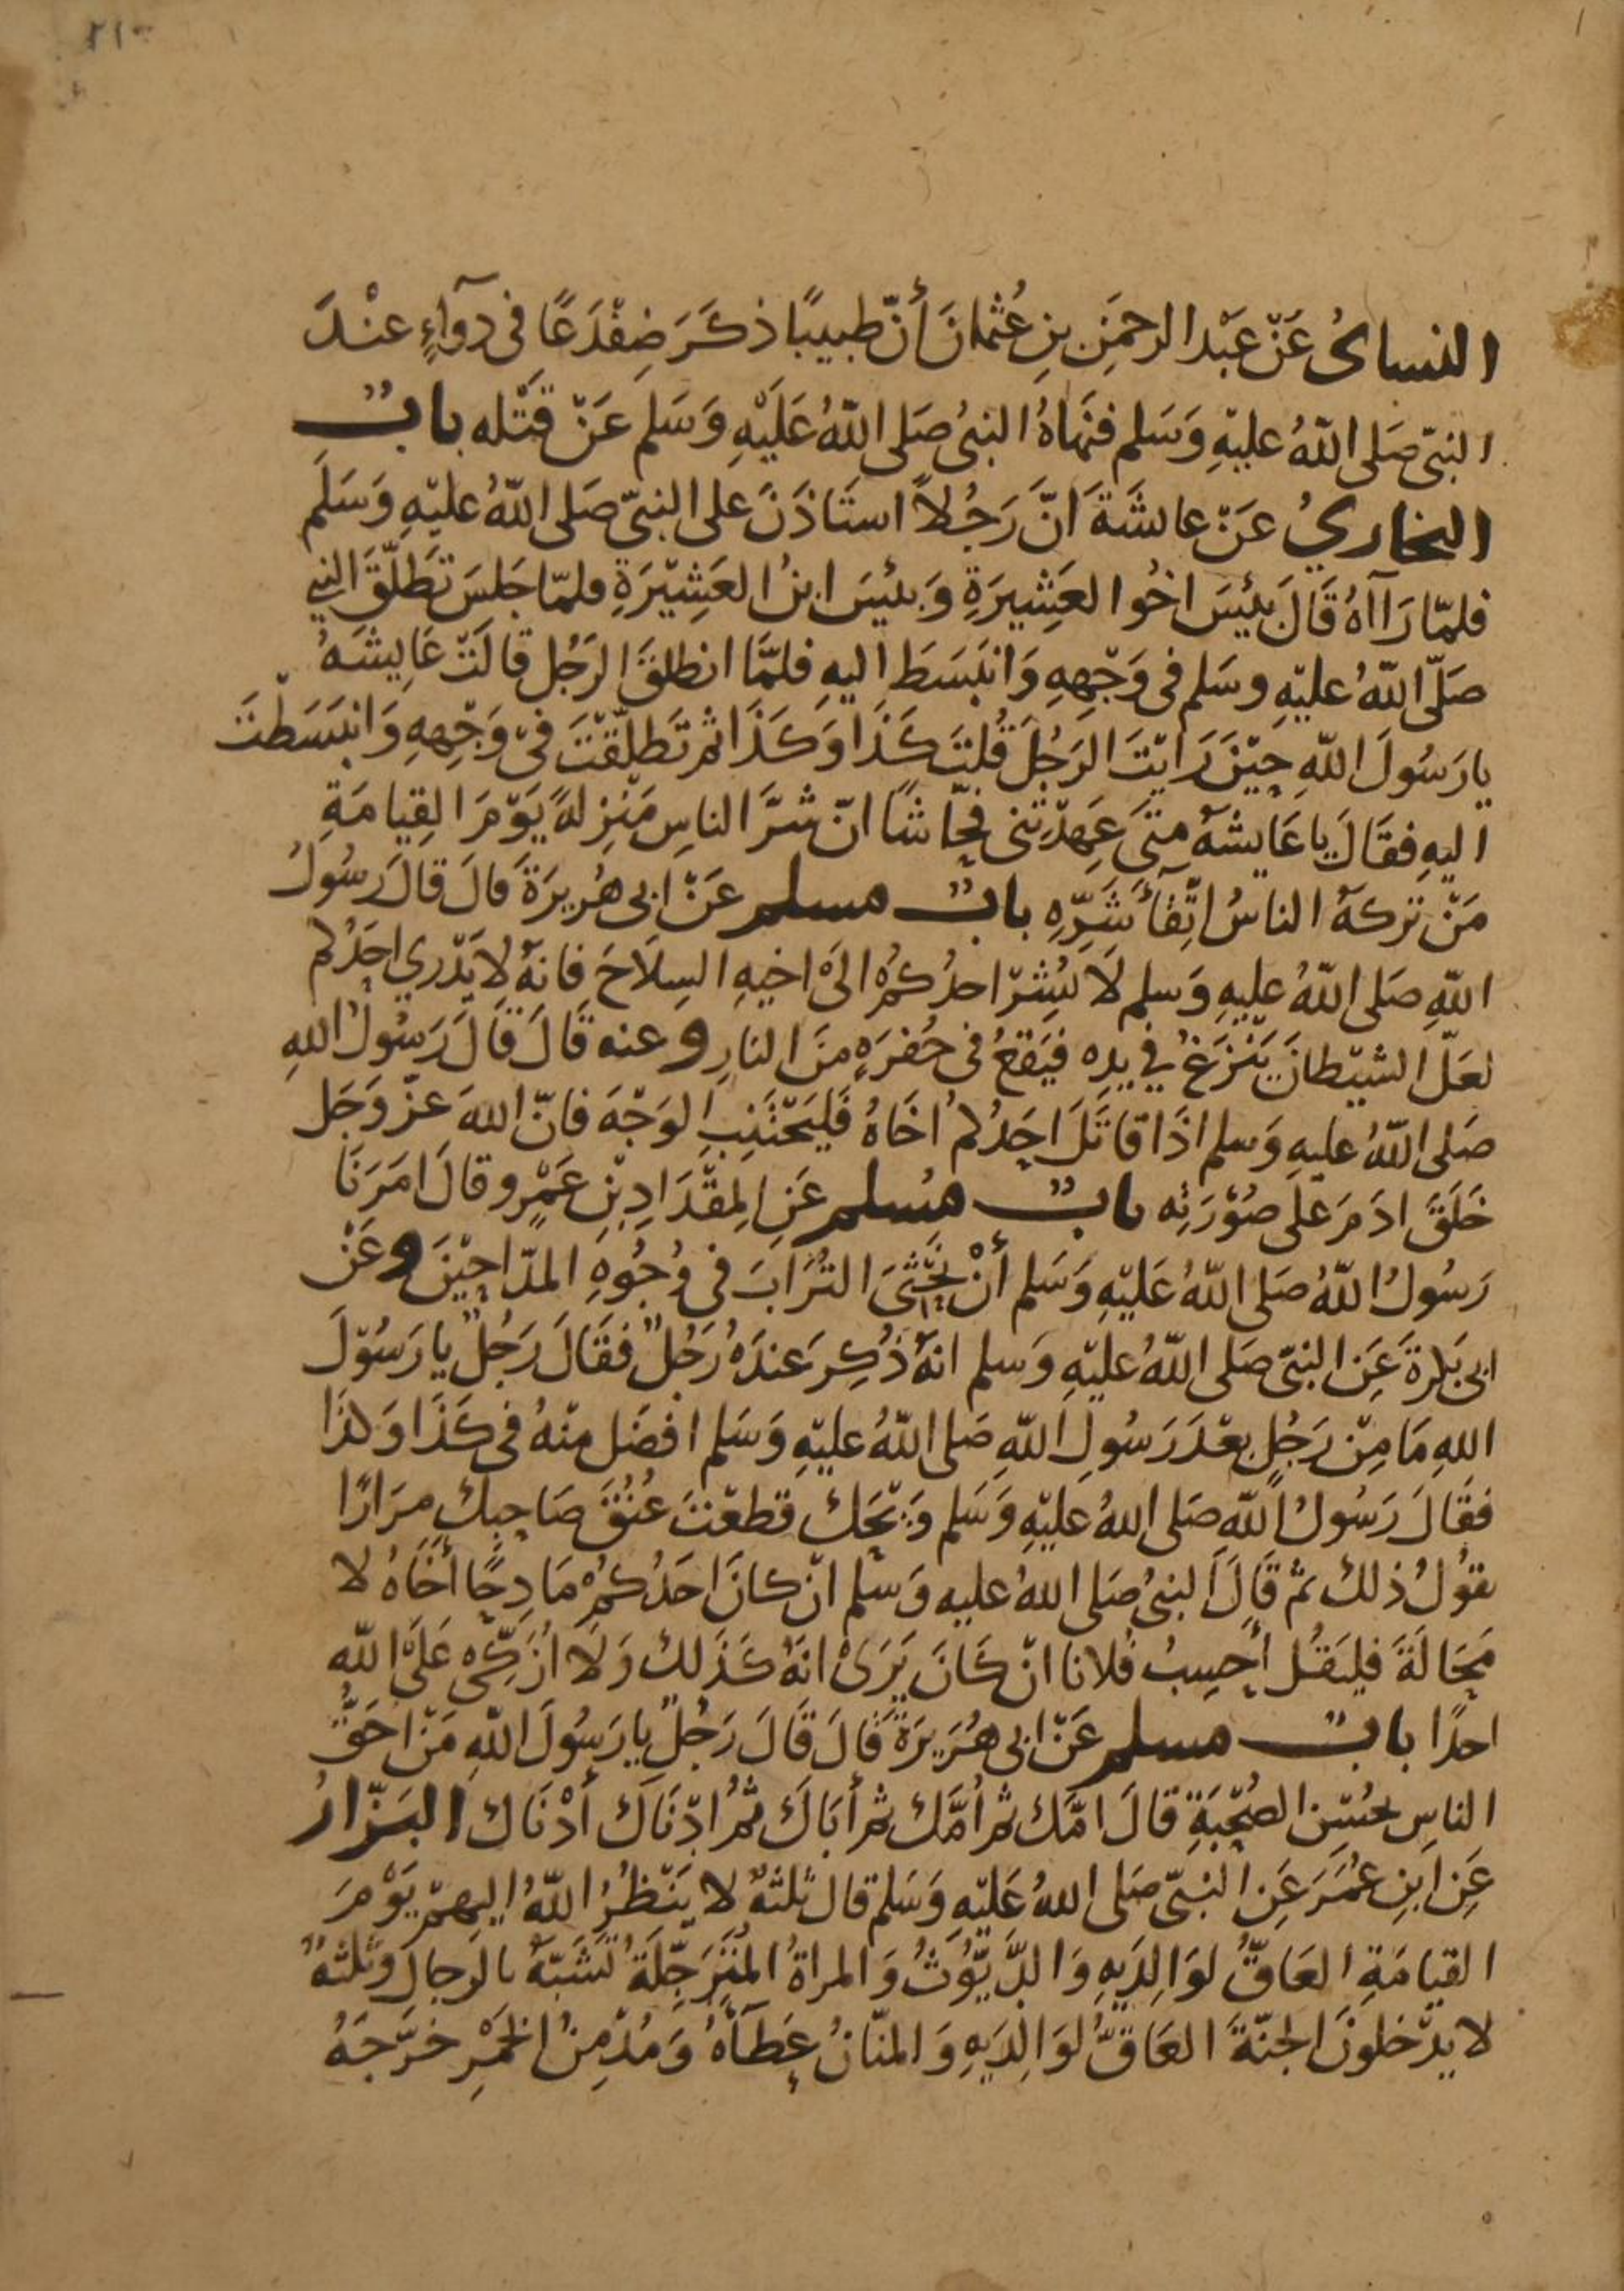 ٢١٣
النسائىُ عَنْ عَبْد الرحمَنِ بنِ عُثمانَ أنّ طبيبًا ذكَرَ ضِفْدَعًا فى دوآءٍ عنْدَ
النبىّ صَلى اللّهُ عليْهِ وَسَلم فنهَاهُ النبىُ صَلى اللّهُ عَلَيْهِ وَسَلم عَنْ قَتْله بابٌ
البخاريُ عَنْ عايشَةَ انَّ رَجُلاً استَاذَنَ على النبىّ صَلى اللّهُ عليْهِ وَسَلَم
فلمّا رَاآهُ قَالَ بئِسَ اخُوا العَشِيرَةِ وَبئيسَ ابنُ العَشِيْرَةِ فلمّا جَلسَ تَطَلّقَ النبي
صَلّى اللّهُ عليْهِ وسَلم فى وَجْهِهِ وَانبَسَطَ اليهِ فلمَّا انطلقَ الرَجُل قالَتْ عَايِشَهُ
يا رَسُولَ اللّهِ حِيْنَ رَايْتَ الرَجُلَ قُلتَ كَذَا وَكَذَا ثم تَطَلّقْتَ فىْ وَجْهِهِ وَانبَسَطْتَ
اليهِ فقَالَ يا عَايشهُ مِتىَ عَهِدْتِنى فحّاشًا انّ شرَّ الناسِ مَنْزلهً يَوْمَ القِيامَةِ
مَنْ تركهُ الناسُ اتّقآءَ شَرّهِ بابٌ مسلم عَنْ ابى هُريرَةَ قالَ قالَ رَسُولُ
اللّهِ صَلى اللّهُ عليهِ وَسلم لاَ يُشِرْ احدُكمُ الىَ اخيهِ السِلاَحَ فانهُ لاَ يَدْري احَدُكم
لعَلّ الشيْطانَ يَنْزَغُ في يدِه فيَقعُ فى حُفرَهٍ منَ النارِ وعنه قَالَ قَالَ رَسُولُ اللهِ
صَلى اللّهُ عليهِ وَسلم اذَا قاتَلَ احَدُكم اخَاهُ فَليَجْتَنِبِ الوَجْهَ فانّ اللهَ عزّ وَجَل
خَلَقَ ادَمَ عَلَى صُوْرَتِه بابٌ مُسلم عَنِ المِقدَادِ بْنِ عَمْرٍو قالَ امَرَنَا
رَسُولُ اللّهُ صَلى اللّهُ عَليْهِ وَسَلم أنْ نَحْثىَ التُرَابَ فى وُجُوهِ المدّاحِيْنَ وعَنْ
ابى بَكرةَ عَنِ النبىّ صَلى اللّهُ عليْهِ وَسلم انهُ ذُكِرَ عندَهُ رَجُلٌ فقَالَ رَجُلٌ يا رَسُوْلَ
اللهِ مَا مِنْ رَجُلٍ بعْدَ رَسُولِ اللّهِ صَلى اللّهُ عليْهِ وَسَلم افضَل منْهُ فى كَذَا وَكذَا
فقَالَ رَسُولُ اللّهِ صَلى اللهُ عليْهِ وَسَلم وَيْحَكَ قطعْتَ عُنُقَ صَاحِبِكَ مِرَارًا
يقوُلُ ذلك ثمّ قَالَ النبىُ صَلى اللهُ عليه وَسلم انْ كانَ احَدُكُمْ مَادِحًا أخَاهُ لا
مَحَالَةَ فليَقُل أحِسِبُ فُلانا انْ كَانَ يَرَىْ انهُ كَذلِكَ وَلاَ ازَكّى عَلَىَ اللّهِ
احدًا بابٌ مسلم عَنْ ابى هُرَيرَةَ قَالَ قَالَ رَجُلٌ يا رَسُولَ اللّهِ مَنْ احَقّ
الناسِ بحُسْنِ الصُحْبَةِ قالَ امّك ثم أمَّك ثم أبَاكَ ثمّ ادْنَاكَ أدْنَاكَ البَزّارُ
عَنِ ابنِ عُمَرَ عَنِ النبىّ صَلى اللهُ عَليْهِ وَسَلم قالَ ثلثهٌ لا يَنْظرُ اللّهُ اليهِمْ يَوْمَ
القيامَةِ العَاقُّ لوَالِدَيهِ وَالدَّيّوُثُ وَالمراةُ المُتَرَجّلَةُ تَشَبّهُ بالرجالِ وثلثهٌ
لا يدْخلونَ الجنّةَ العَاقُّ لوَالِدَيهِ وَالمنّانُ عَطَآءَهُ وَمُدْمِنُ الخمْرِ خرَّجَهُ